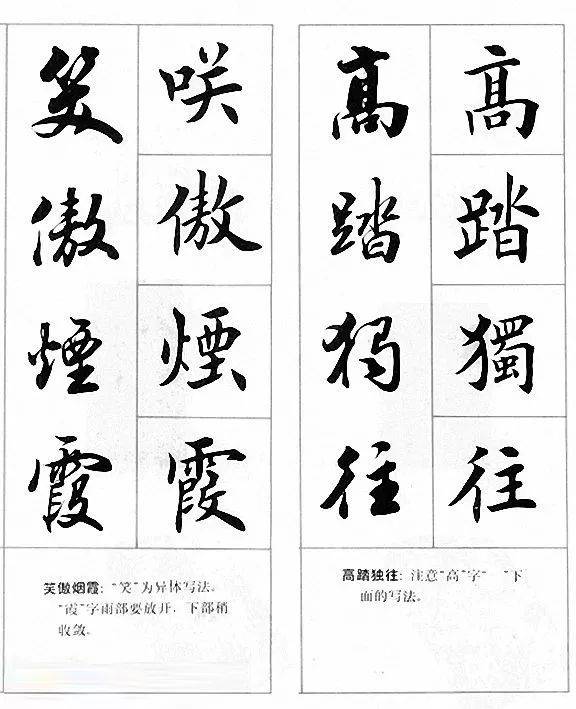 髙踏獨往
髙踏獨往
高踏独往：注意“高”字“ ”下
面的写法。
咲傲煙霞
笑傲煙霞
笑傲烟霞：“笑”为异体写法。
“霞”字雨部要放开，下部稍
收敛。